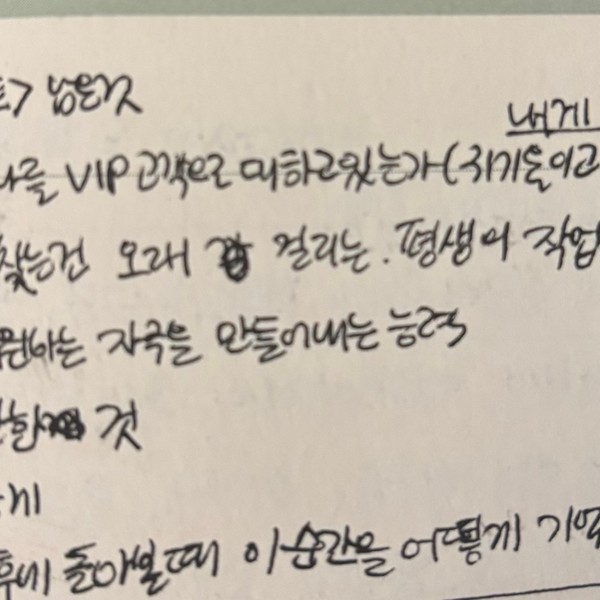 남은것
내게
나를 VIP 고객으로 대하고있는가(자기돌이고
찾는건 오래 걸리는. 평생의 작업
원하는 자극을 만들어내는 능력
것
게
후에 돌아볼때 이 순간을 어떻게 기억